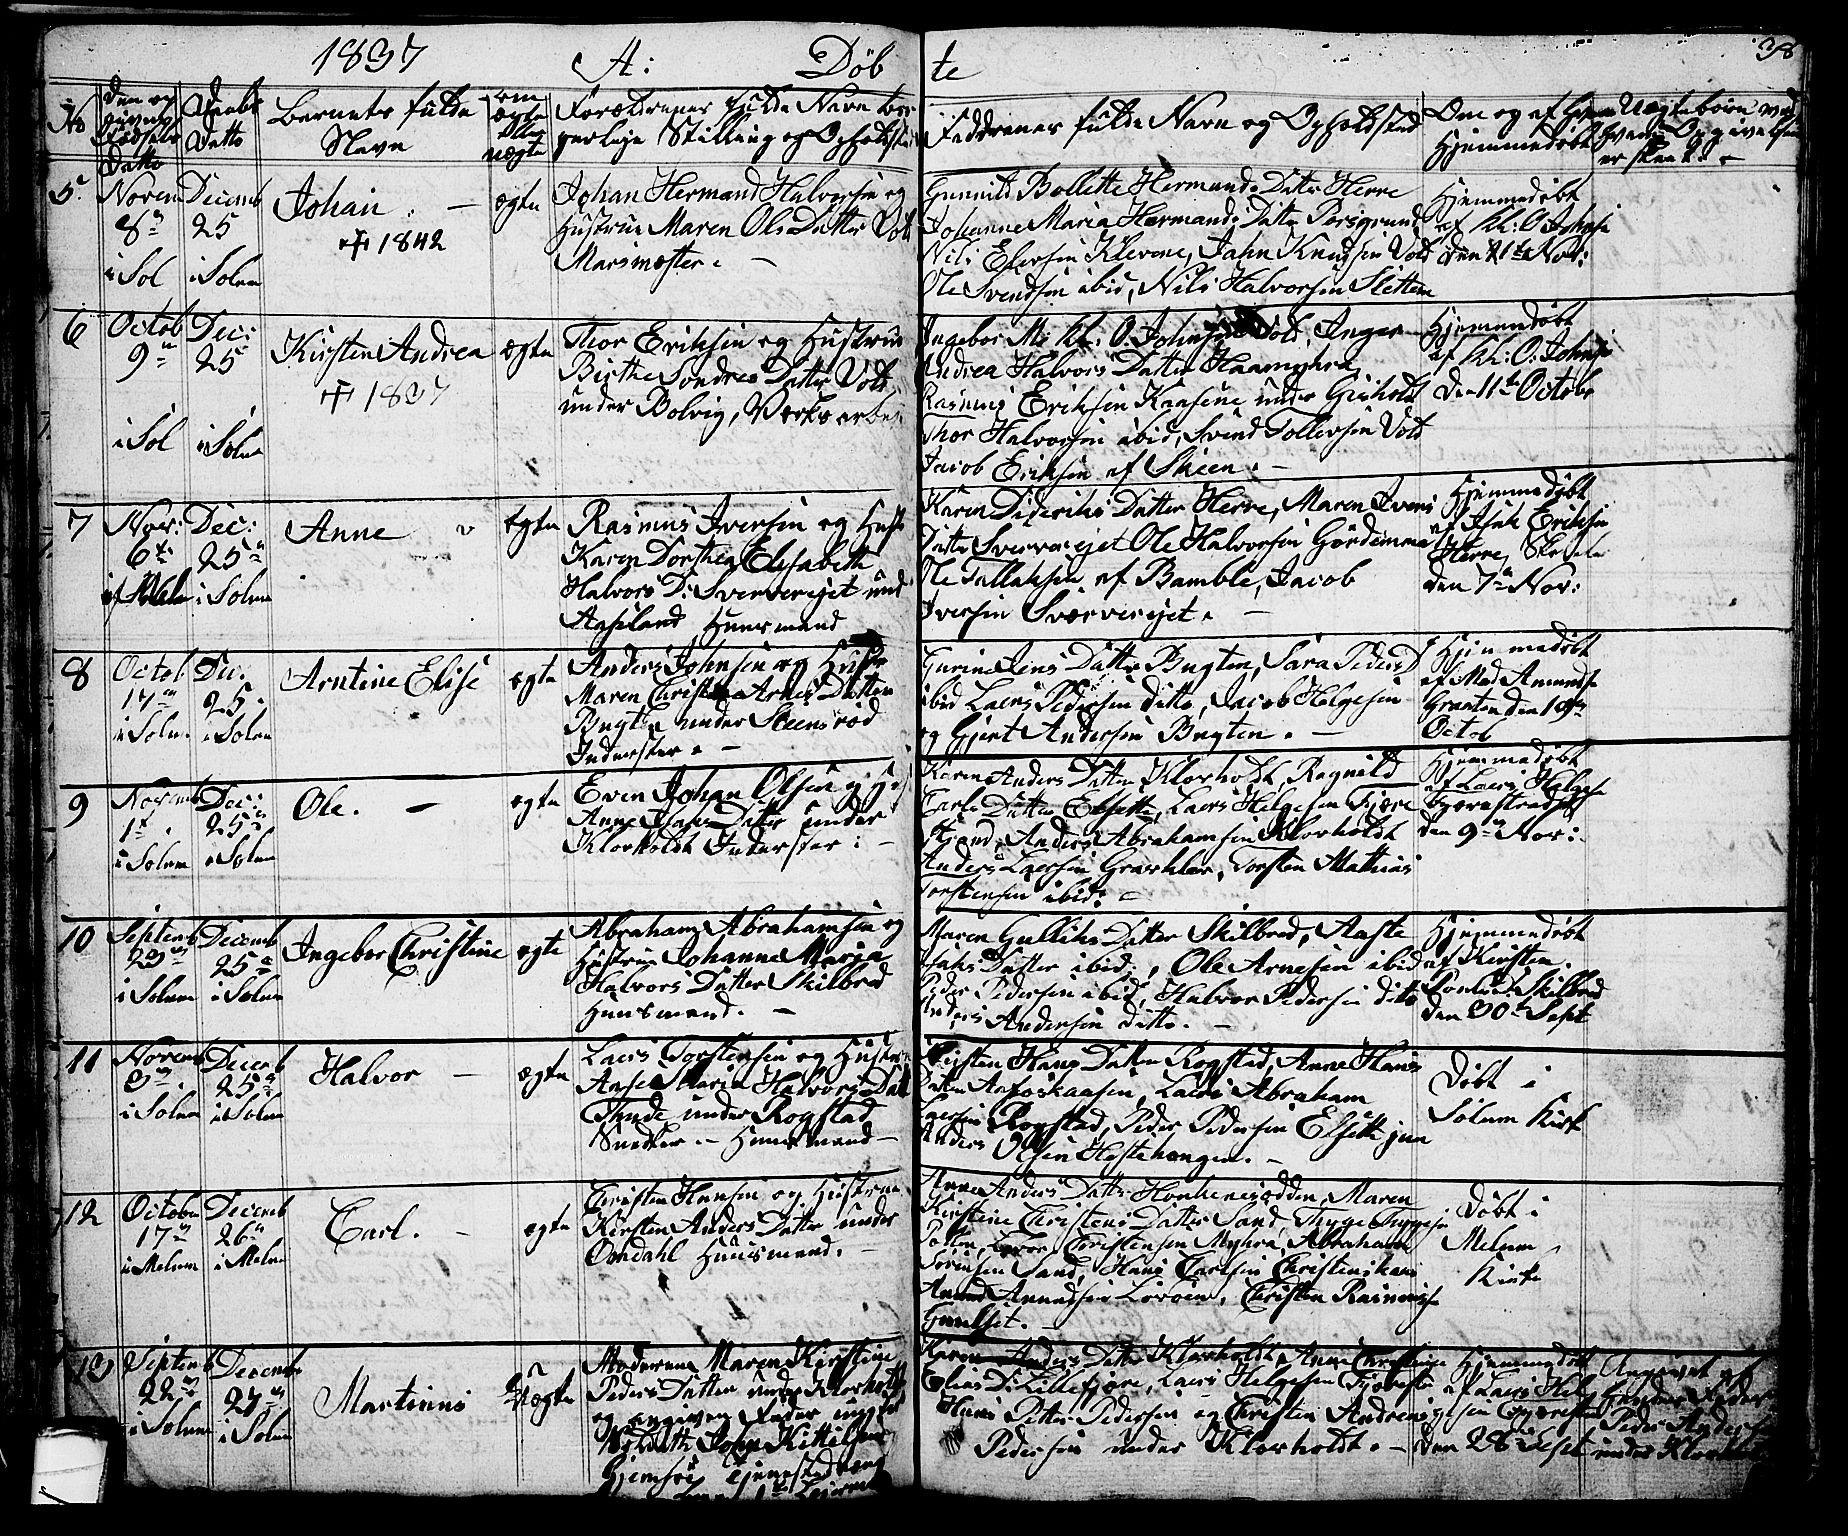 1837 A: Döb te 38
No Den og given Födsels Datto
Daabs Datto
Barnets fulde Navn
om ægte eller uægte
Forældrenes fulde Navn bor-
gerlige Stilling og Opholdsted
Faddernes fulde Navn og Opholdsted
Om og af hvem Hjemmedöbt
Uægte börn ved hvem Opgivelsen er skeed. -
5.
Novem 8de i Sol
Decemb 25 i Solum
Johan. -
✝ 1842
ægte
Johan Hermand Halvorsen og
Hustrue Maren Ols Datter Vold
Marsmester. -
Gunnild Bollette Hermands Datter Herre
Johanne Maria Hermands Datter Porsgrund
Nils Elersen Klevene, Jahn Knudsen Vold
Ole Svendsen ibid, Nils Halvorsen Sletten
Hjemmedöbt
af Kl: O. Johnse
den 21te Nov:
6
Octob 9de i Sol
Dec: 25 i Solum
Kirsten Andrea
✝ 1837
ægte
Thor Eriksen og Hustrue
Birthe Sondres Datter Vold
under Bolvig, Værks arbei
Ingebor M. Kl: O. Johnsen Vold, Inger
Andrea Halvors Datter Haamyhra
Rasmus Eriksen Kaasene under Gisholdt
Thor Halvorsen ibid, Svend Tollevsen Vold
Jacob Eriksen af Skeen. -
Hjemmedöbt
af Kl: O: Johnse
den 11te Octobr
7
Nov: 6te
Dec: 25de i Solum
Anne
ægte
Rasmus Iversen og Hust
Karen Dorthea Elisabeth
Halvors D: Sververejet und
Aasland Huusmand
Karen Dideriks Datter Herre, Maren Ivers
Datter Sververejet Ole Halvorsen Gördemma
Ole Tallaksen af Bamble, Jacob
Iversen Sværverejet.
Hjemmedöbt
af Isak Eriksen
Herre,
den 7de Nov:
8
Octob 17de i Solum
Dec. 25 i Solum
Arntine Elise
ægte
Anders Johnsen og Hustr
Maren Christine Arnes Datter
Bugten under Steensrød
Inderster. -
Gurine Jens Datter Bugten, Sara Peders D
ibid Laers Pedersen ditto, Jacob Helgesen
og Gjert Andersen Bugten. -
Hjemmedöbt
af Mad Amundse
Graaten den 19de
Octob
9
Novemb 1te i Solum
Dec: 25de i Solum
Ole. -
ægte
Even Johan Olsen og Hus
Anne Isaks Datter under
Klovholdt Inderster: -
Karen Anders Datter Klovholdt, Ragnild
Carls Datter Elsette, Laers Helgesen Fjære
Strand, Anders Abrahamsen Klovholdt
Anders Laersen Graasklev, Torsten Mathias
Torstensen ibid: -
Hjemmedöbt
af Laers Helgese
Fjærestranden
den 9de Nov:
10
Septemb 29de i Solum
Decemb 25de i Solum
Ingebor Christine
ægte
Abraham Abrahamsen og
Hustrue Johanne Maria
Halvors Datter Skilbred
Huusmand. -
Maren Gulliks Datter Skilbred, Aaste
Isaks Datter ibid:, Ole Arnesen ibid
Peder Pedersen ibid, Halvor Pedersen ditto
Anders Andersen ditto. -
Hjemmedöbt
af Kirsten
Skilbred
den 30te Sept
11
Novemb i Solum
Decemb 25de i Solum
Halvor -
ægte
Laers Torstensen og Hustrue
Anse Maria Halvors Datt
Tynde under Rogstad
Snedker. - Huusmand -
Kirsten Hans Datter Rogstad, Anne Hans
Datter Aafoskaasen, Laers Abraham
Laersen Rogstad, Peder Pedersen Elsette jun
Anders Olsen Hestehangen. -
Döbt i
Solum Kirk
12
Octobe 17de i Melum
Decemb 26de i Melum
Carl. -
ægte
Christen Hansen og Hustrue
Kirsten Anders Datter under
Omdahl Huusmand. -
Anne Anders Datter Honhenesodden, Maren
Kirstine Christens Datter Sand, Thyge Thygese
Christensen Myhra, Abraham
Sörensen Sand, Hans Carlsen Christenskaas
Amund Amundsen Lovoen, Christen Rasmusse
Gunelset. -
Döbt i
Melum
Kirke
13
Septemb 22de i Solum
Decemb 27de i Solum
Martinus
Uægte
Moderen Maren Kirstine
Peders Datter under Klovholdt
og angiven Fader ungkar
John Kittilsen
Gjemsöe tjenestedreng
Karen Anders Datter Klovholdt, Anne Christine
Elias D. Lillefjære, Laers Helgesen Fjærestr
Hans Petter Pedersen og Christen Andreas
Pedersen under Klovholdt. -
Hjemmedöbt
af Laers Hel
gesen Fjærestr
den 28de Sept
Angivet af
Fader
Peder Andersen
under Klovholdt